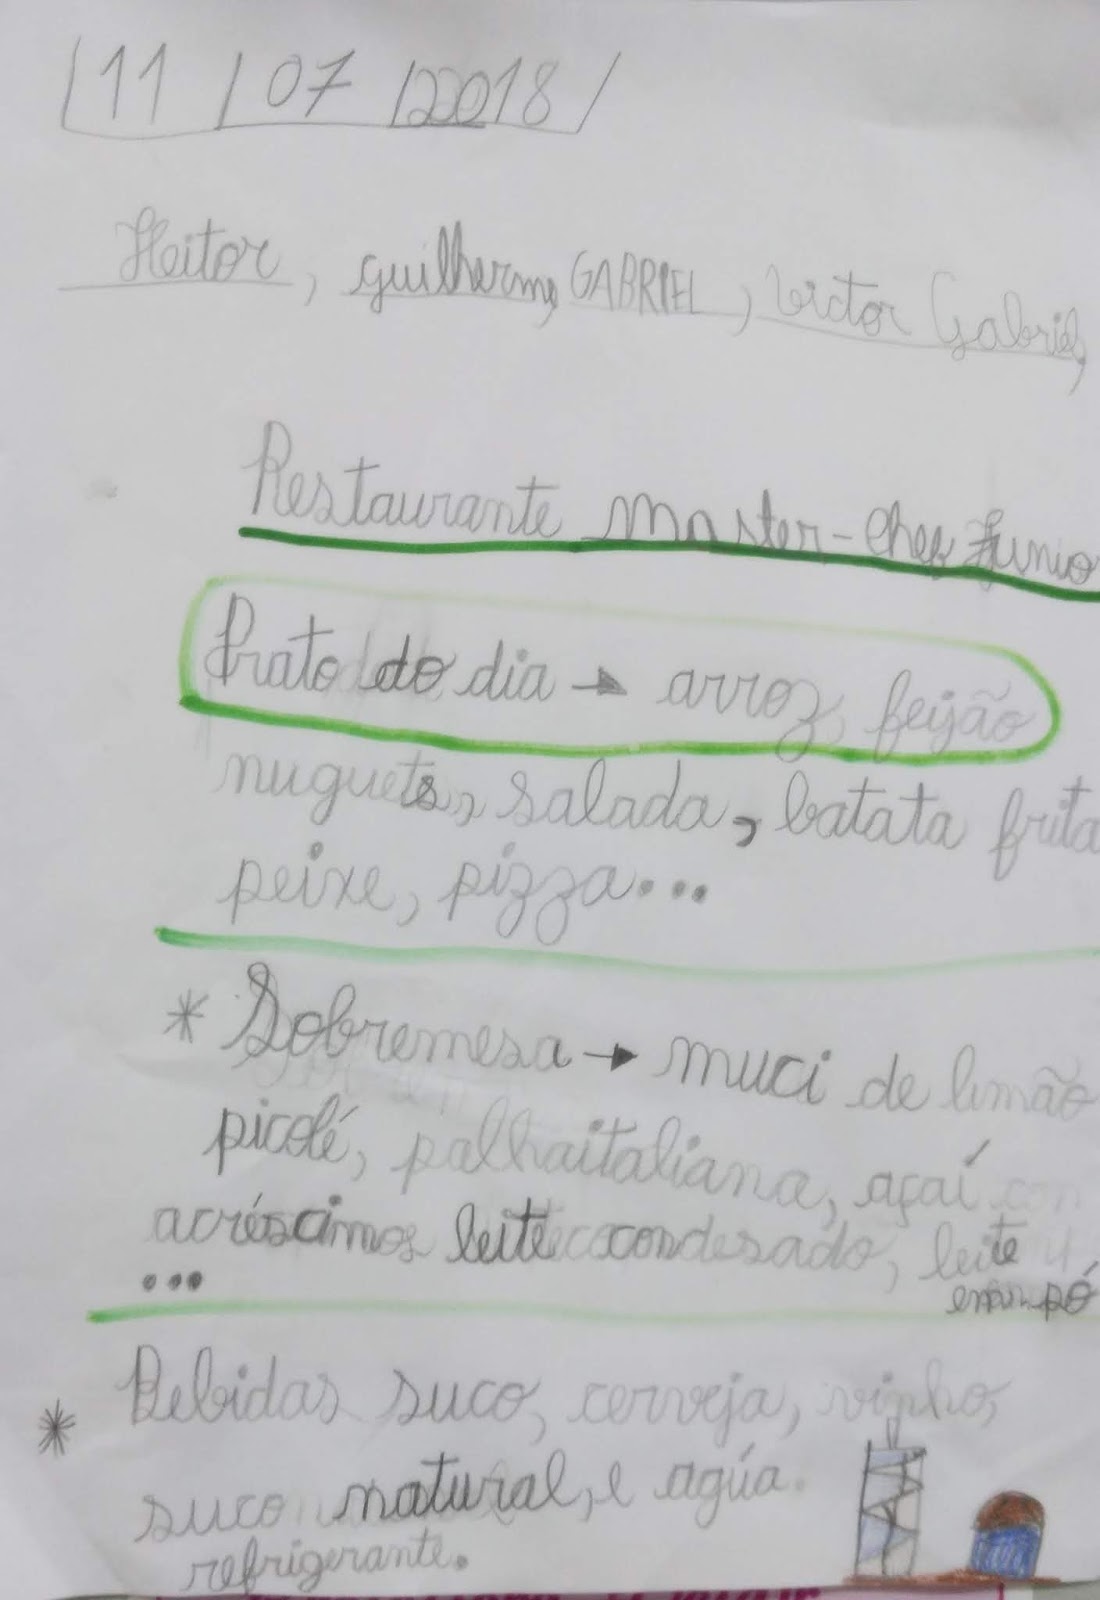 11/07/2018
Heitor, guilherme, GABRIEL, Victor Gabriel,
Restaurante Master-Chef Junio
Prato do dia → arroz, feijão
nuguets, salada, batata frita
peixe, pizza...
* Sobremesa → muci de limão
picolé, palhaitaliana, açaí con
acréscimos leite condesado, leite
em pó
...
* Bebidas suco, cerveja, vinho,
suco natural, e agúa.
refrigerante.